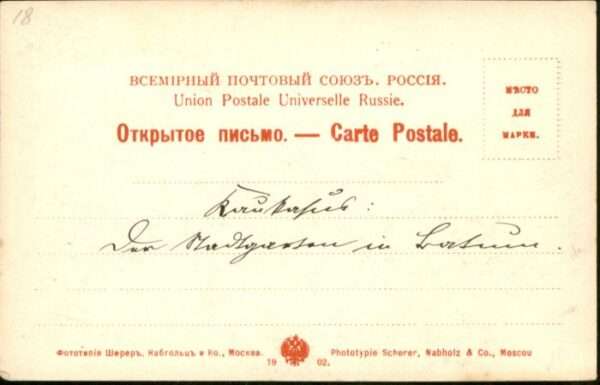 18
ВСЕМІРНЫЙ ПОЧТОВЫЙ СОЮЗЪ. РОССІЯ.
Union Postale Universelle Russie.
МѢСТО
ДЛЯ
МАРКИ.
Открытое письмо. — Carte Postale.
Kaukasus:
Der Stadtgarten in Batum.
Фототипія Шереръ, Набгольцъ и Ко., Москва.
Phototypie Scherer, Nabholz & Co., Moscou
19 02.